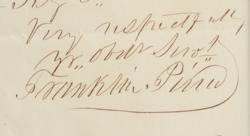 Very respectfully
Yr. obdt Servt
Franklin Pierce